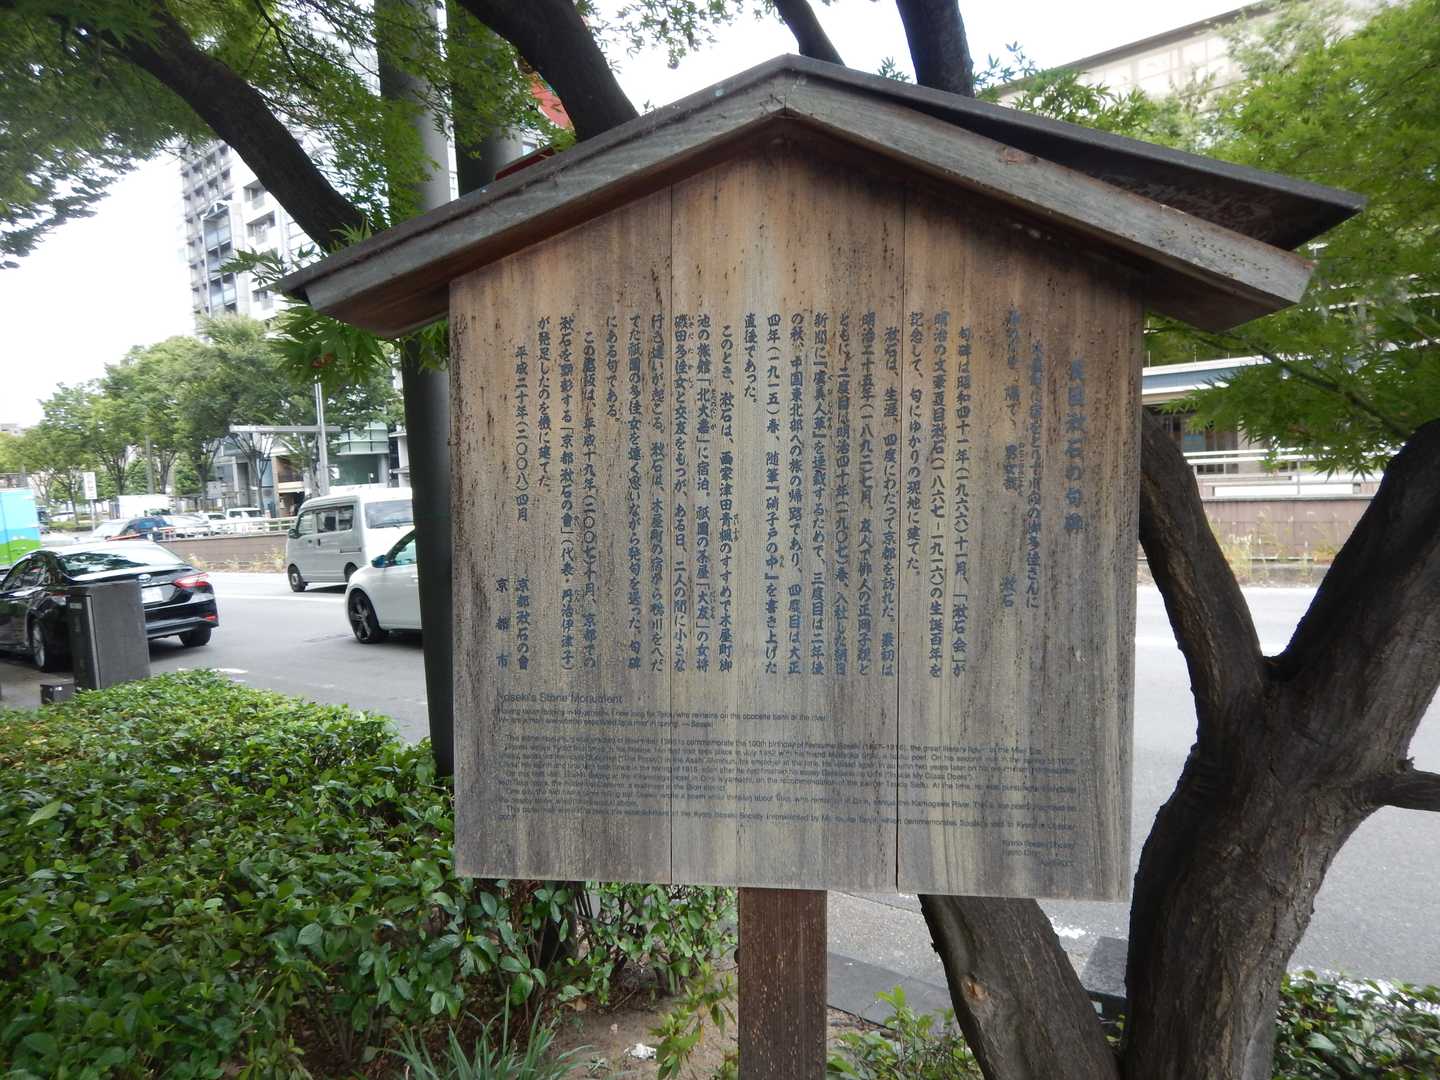 夏目漱石の句碑
木屋町に宿をとりて川向の御多佳さんに
春の川を 隔てゝ 男女哉 漱石
句碑は昭和四十一年(一九六六)十一月、「漱石会」が
明治の文豪夏目漱石(一八六七-一九一六)の生誕百年を
記念して、句にゆかりの現地に建てた。
漱石は、生涯、四度にわたって京都を訪れた。最初は
明治二十五年(一八九二)七月、友人で俳人の正岡子規と
ともに。二度目は明治四十年(一九〇七)春、入社した朝日
新聞に『虞美人草』を連載するためで、三度目は二年後
の秋、中国東北部への旅の帰路であり、四度目は大正
四年(一九一五)春、随筆『硝子戸の中』を書き上げた
直後であった。
このとき、漱石は、画家津田青楓のすすめで木屋町御
池の旅館「北大嘉」に宿泊。祇園の茶屋「大友」の女将
磯田多佳女と交友をもつが、ある日、二人の間に小さな
行き違いが起こる。漱石は、木屋町の宿から鴨川をへだ
てた祇園の多佳女を遠く思いながら発句を送った。句碑
にある句である。
この駒札は、平成十九年(二〇〇七)十月、京都での
漱石を顕彰する「京都漱石の會」(代表・丹治伊津子)
が発足したのを機に建てた。
平成二十年(二〇〇八)四月
京都漱石の會
京都市
Soseki's Stone Monument
Having taken lodging in Kiyamachi, I now long for Taka, who remains on the opposite bank of the river.